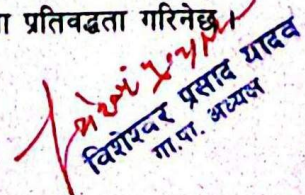 ा प्रतिवद्धता गरिनेछ।
विशेश्वर प्रसाद यादव
गा.पा. अध्यक्ष